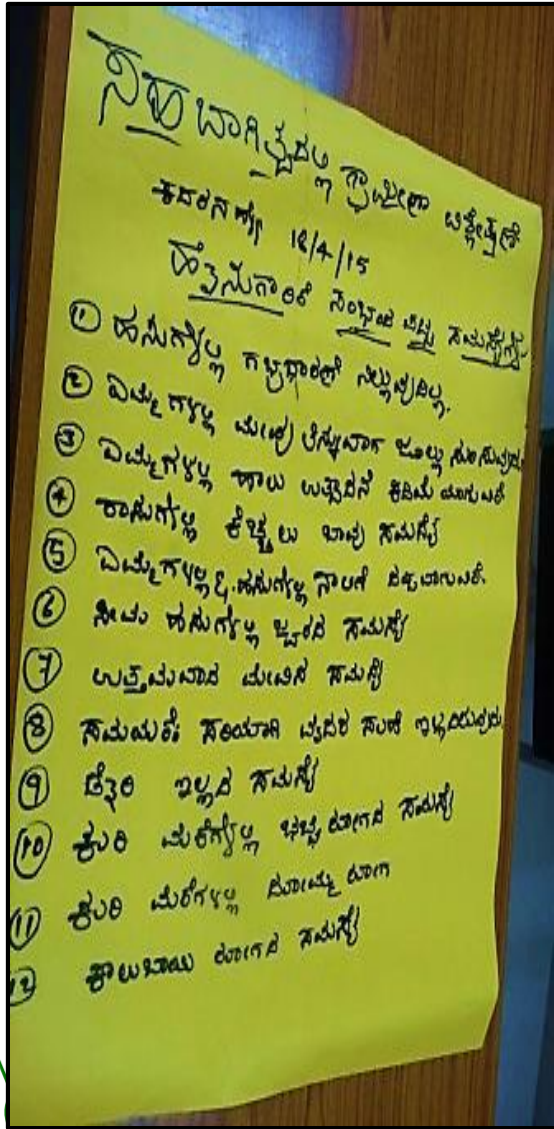 ಸಹಬಾಗಿತ್ವದಲ್ಲಿ ಗ್ರಾಮೀಣ ವಿಶ್ಲೇಷಣೆ
18/4/15
ಹೈನುಗಾರಿಕೆ ಸಂಭಂದ ಪಟ್ಟ ಸಮಸ್ಯೆಗಳು
① ಹಸುಗಳಲ್ಲಿ ಗರ್ಭಧಾರಣೆ ನಿಲ್ಲುವುದಿಲ್ಲ.
② ಎಮ್ಮೆಗಳಲ್ಲಿ ಮೇವು ತಿನ್ನುವಾಗ ಜೊಲ್ಲು ಸುರಿಸುವುದು
③ ಎಮ್ಮೆಗಳಲ್ಲಿ ಹಾಲು ಉತ್ಪಾದನೆ ಕಡಿಮೆ ಯಾಗುವಿಕೆ
④ ರಾಸುಗಳಲ್ಲಿ ಕೆಚ್ಚಲು ಬಾವು ಸಮಸ್ಯೆ
⑤ ಎಮ್ಮೆಗಳಲ್ಲಿ & ಹಸುಗಳಲ್ಲಿ ನಾಲಗೆ ದಪ್ಪವಾಗುವಿಕೆ.
⑥ ಸೀಮೆ ಹಸುಗಳಲ್ಲಿ ಜ್ವರದ ಸಮಸ್ಯೆ
⑦ ಉತ್ತಮವಾದ ಮೇವಿನ ಸಮಸ್ಯೆ
⑧ ಸಮಯಕ್ಕೆ ಸರಿಯಾಗಿ ವೈದ್ಯರ ಸಲಹೆ ಇಲ್ಲದಿರುವುದು
⑨ ಡೈರಿ ಇಲ್ಲದ ಸಮಸ್ಯೆ
⑩ ಕುರಿ ಮರಿಗಳಲ್ಲಿ ರೋಗದ ಸಮಸ್ಯೆ
⑪ ಕುರಿ ಮರಿಗಳಲ್ಲಿ ರೋಗ
⑫ ಕಾಲುಬಾಯಿ ರೋಗದ ಸಮಸ್ಯೆ